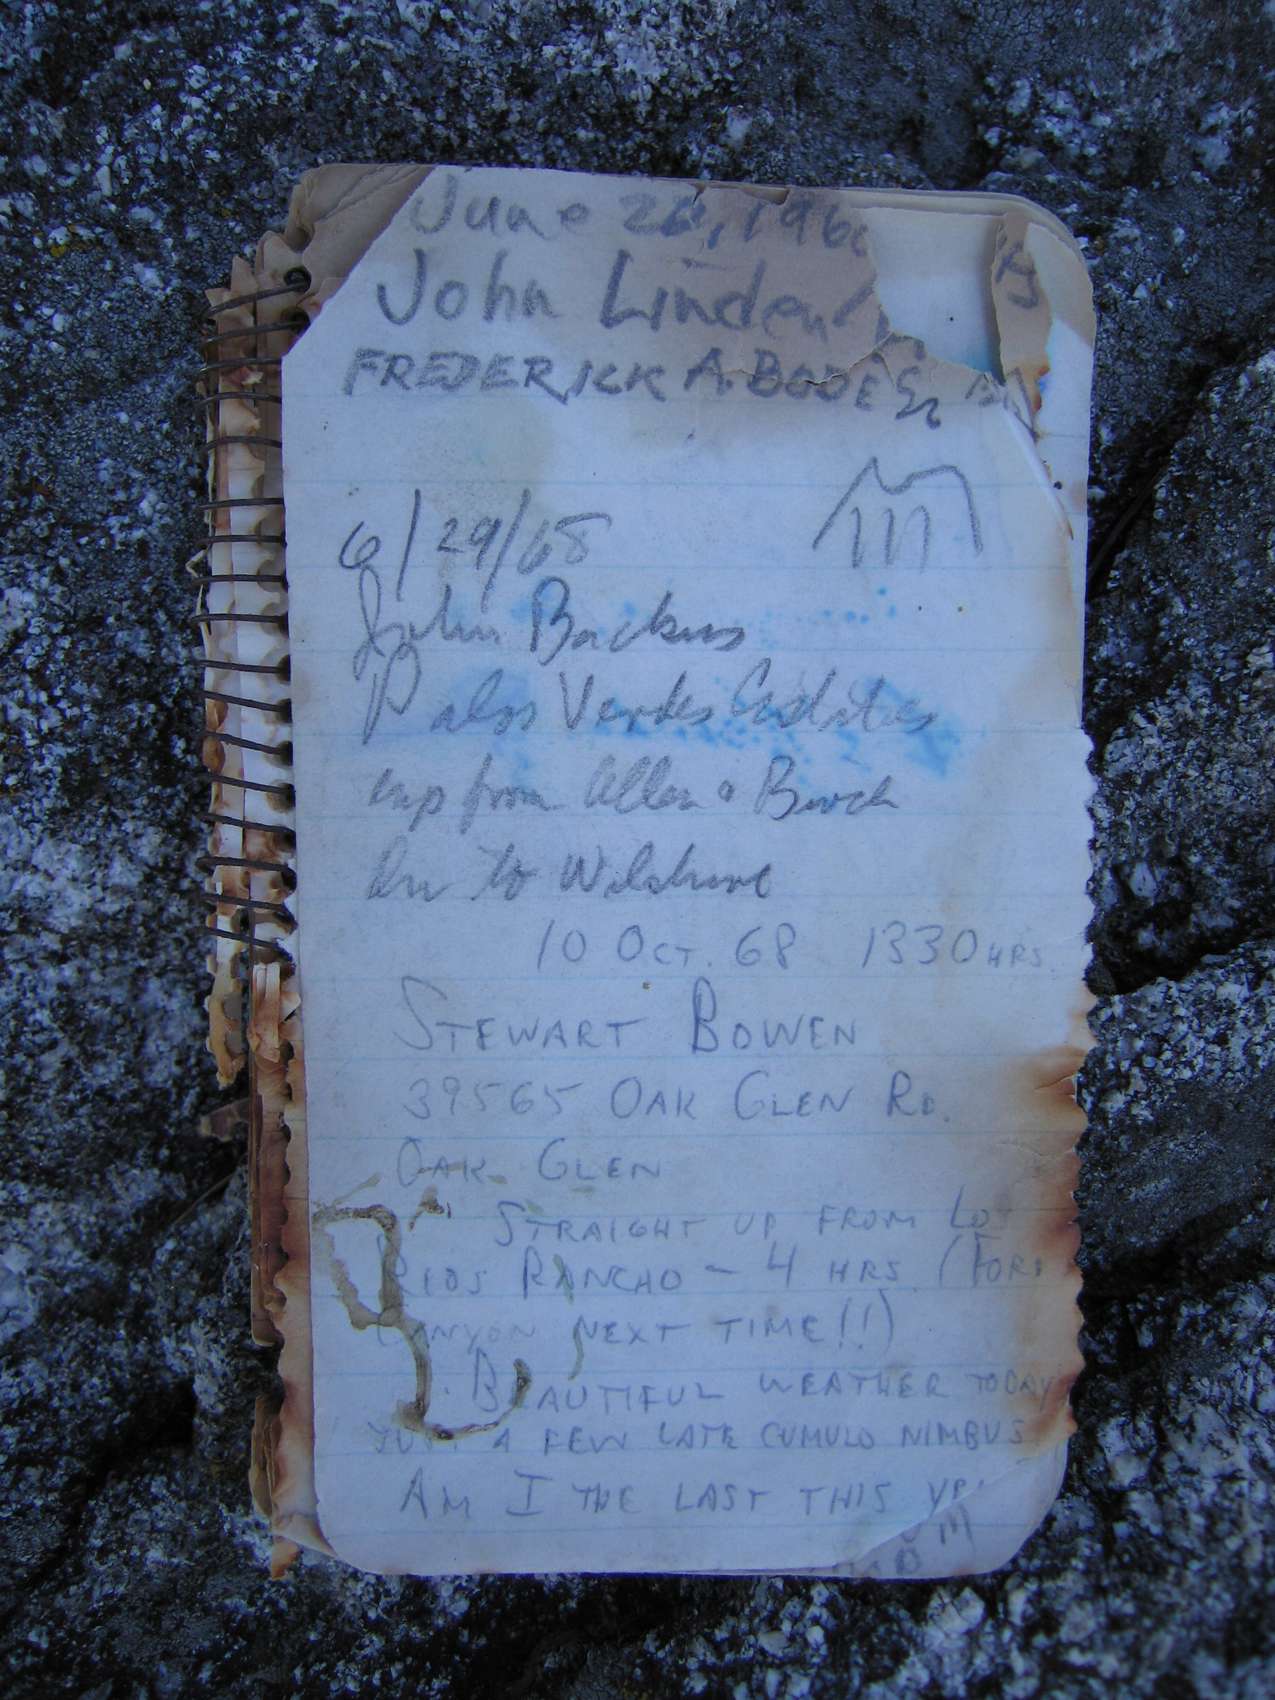 June 26, 196
John Linden
FREDERICK A. BODE Sr
6/29/68
John Backus
Palos Verdes Estates
up from Allen & Birch
on to Wilshire
10 OCT. 68 1330 HRS.
STEWART BOWEN
39565 OAK GLEN RD.
OAK GLEN
STRAIGHT UP FROM LO
RIOS RANCHO - 4 HRS. (FORK
CANYON NEXT TIME!!)
BEAUTIFUL WEATHER TODAY
JUST A FEW LATE CUMULO NIMBUS
AM I THE LAST THIS YR